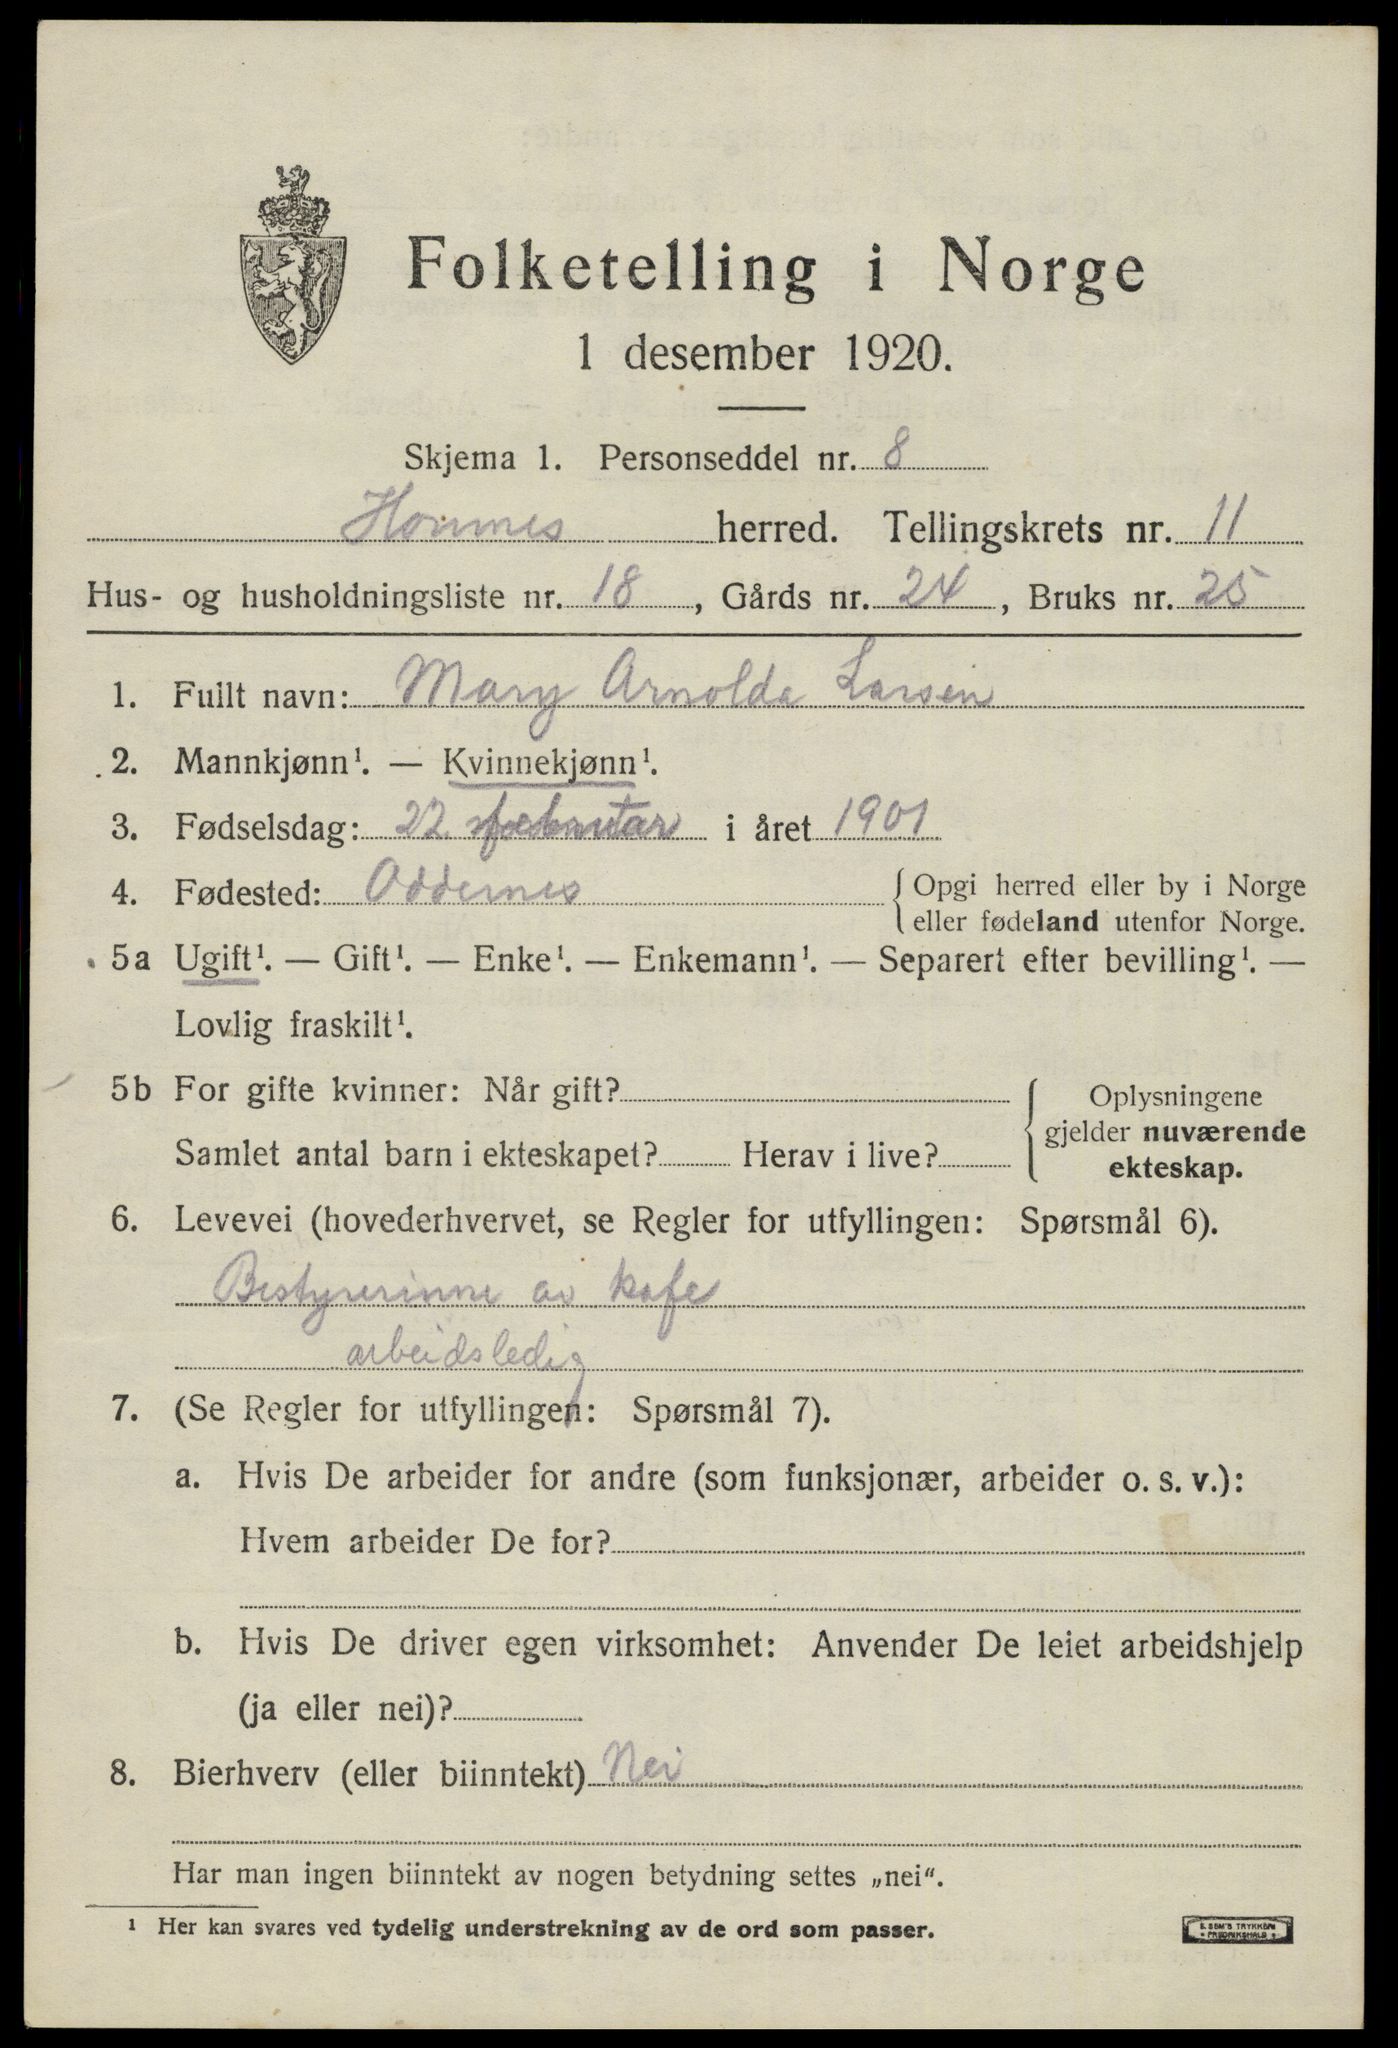 Folketelling i Norge
1 desember 1920.
Skjema 1. Personseddel nr. 8
Honnes herred. Tellingskrets nr. 11
Hus- og husholdningsliste nr. 18, Gårds nr. 24, Bruks nr. 25
1. Fullt navn: Mary Arnolda Larsen
2. Mannkjønn¹. — Kvinnekjønn¹.
3. Fødselsdag: 22 februar i året 1901
4. Fødested: Oddernes { Opgi herred eller by i Norge
eller fødeland utenfor Norge.
5a Ugift¹. — Gift¹. — Enke¹. — Enkemann¹. — Separert efter bevilling¹. —
Lovlig fraskilt¹.
5b For gifte kvinner: Når gift? { Oplysningene
gjelder nuværende
Samlet antal barn i ekteskapet? Herav i live? ekteskap.
6. Levevei (hovederhvervet, se Regler for utfyllingen: Spørsmål 6).
Bestyrerinne av kafe
arbeidsledig
7. (Se Regler for utfyllingen: Spørsmål 7).
a. Hvis De arbeider for andre (som funksjonær, arbeider o. s. v.):
Hvem arbeider De for?
b. Hvis De driver egen virksomhet: Anvender De leiet arbeidshjelp
(ja eller nei)?
8. Bierhverv (eller biinntekt) Nei
Har man ingen biinntekt av nogen betydning settes „nei“.
¹ Her kan svares ved tydelig understrekning av de ord som passer.
E. SEM'S TRYKKERI
FREDRIKSHALD